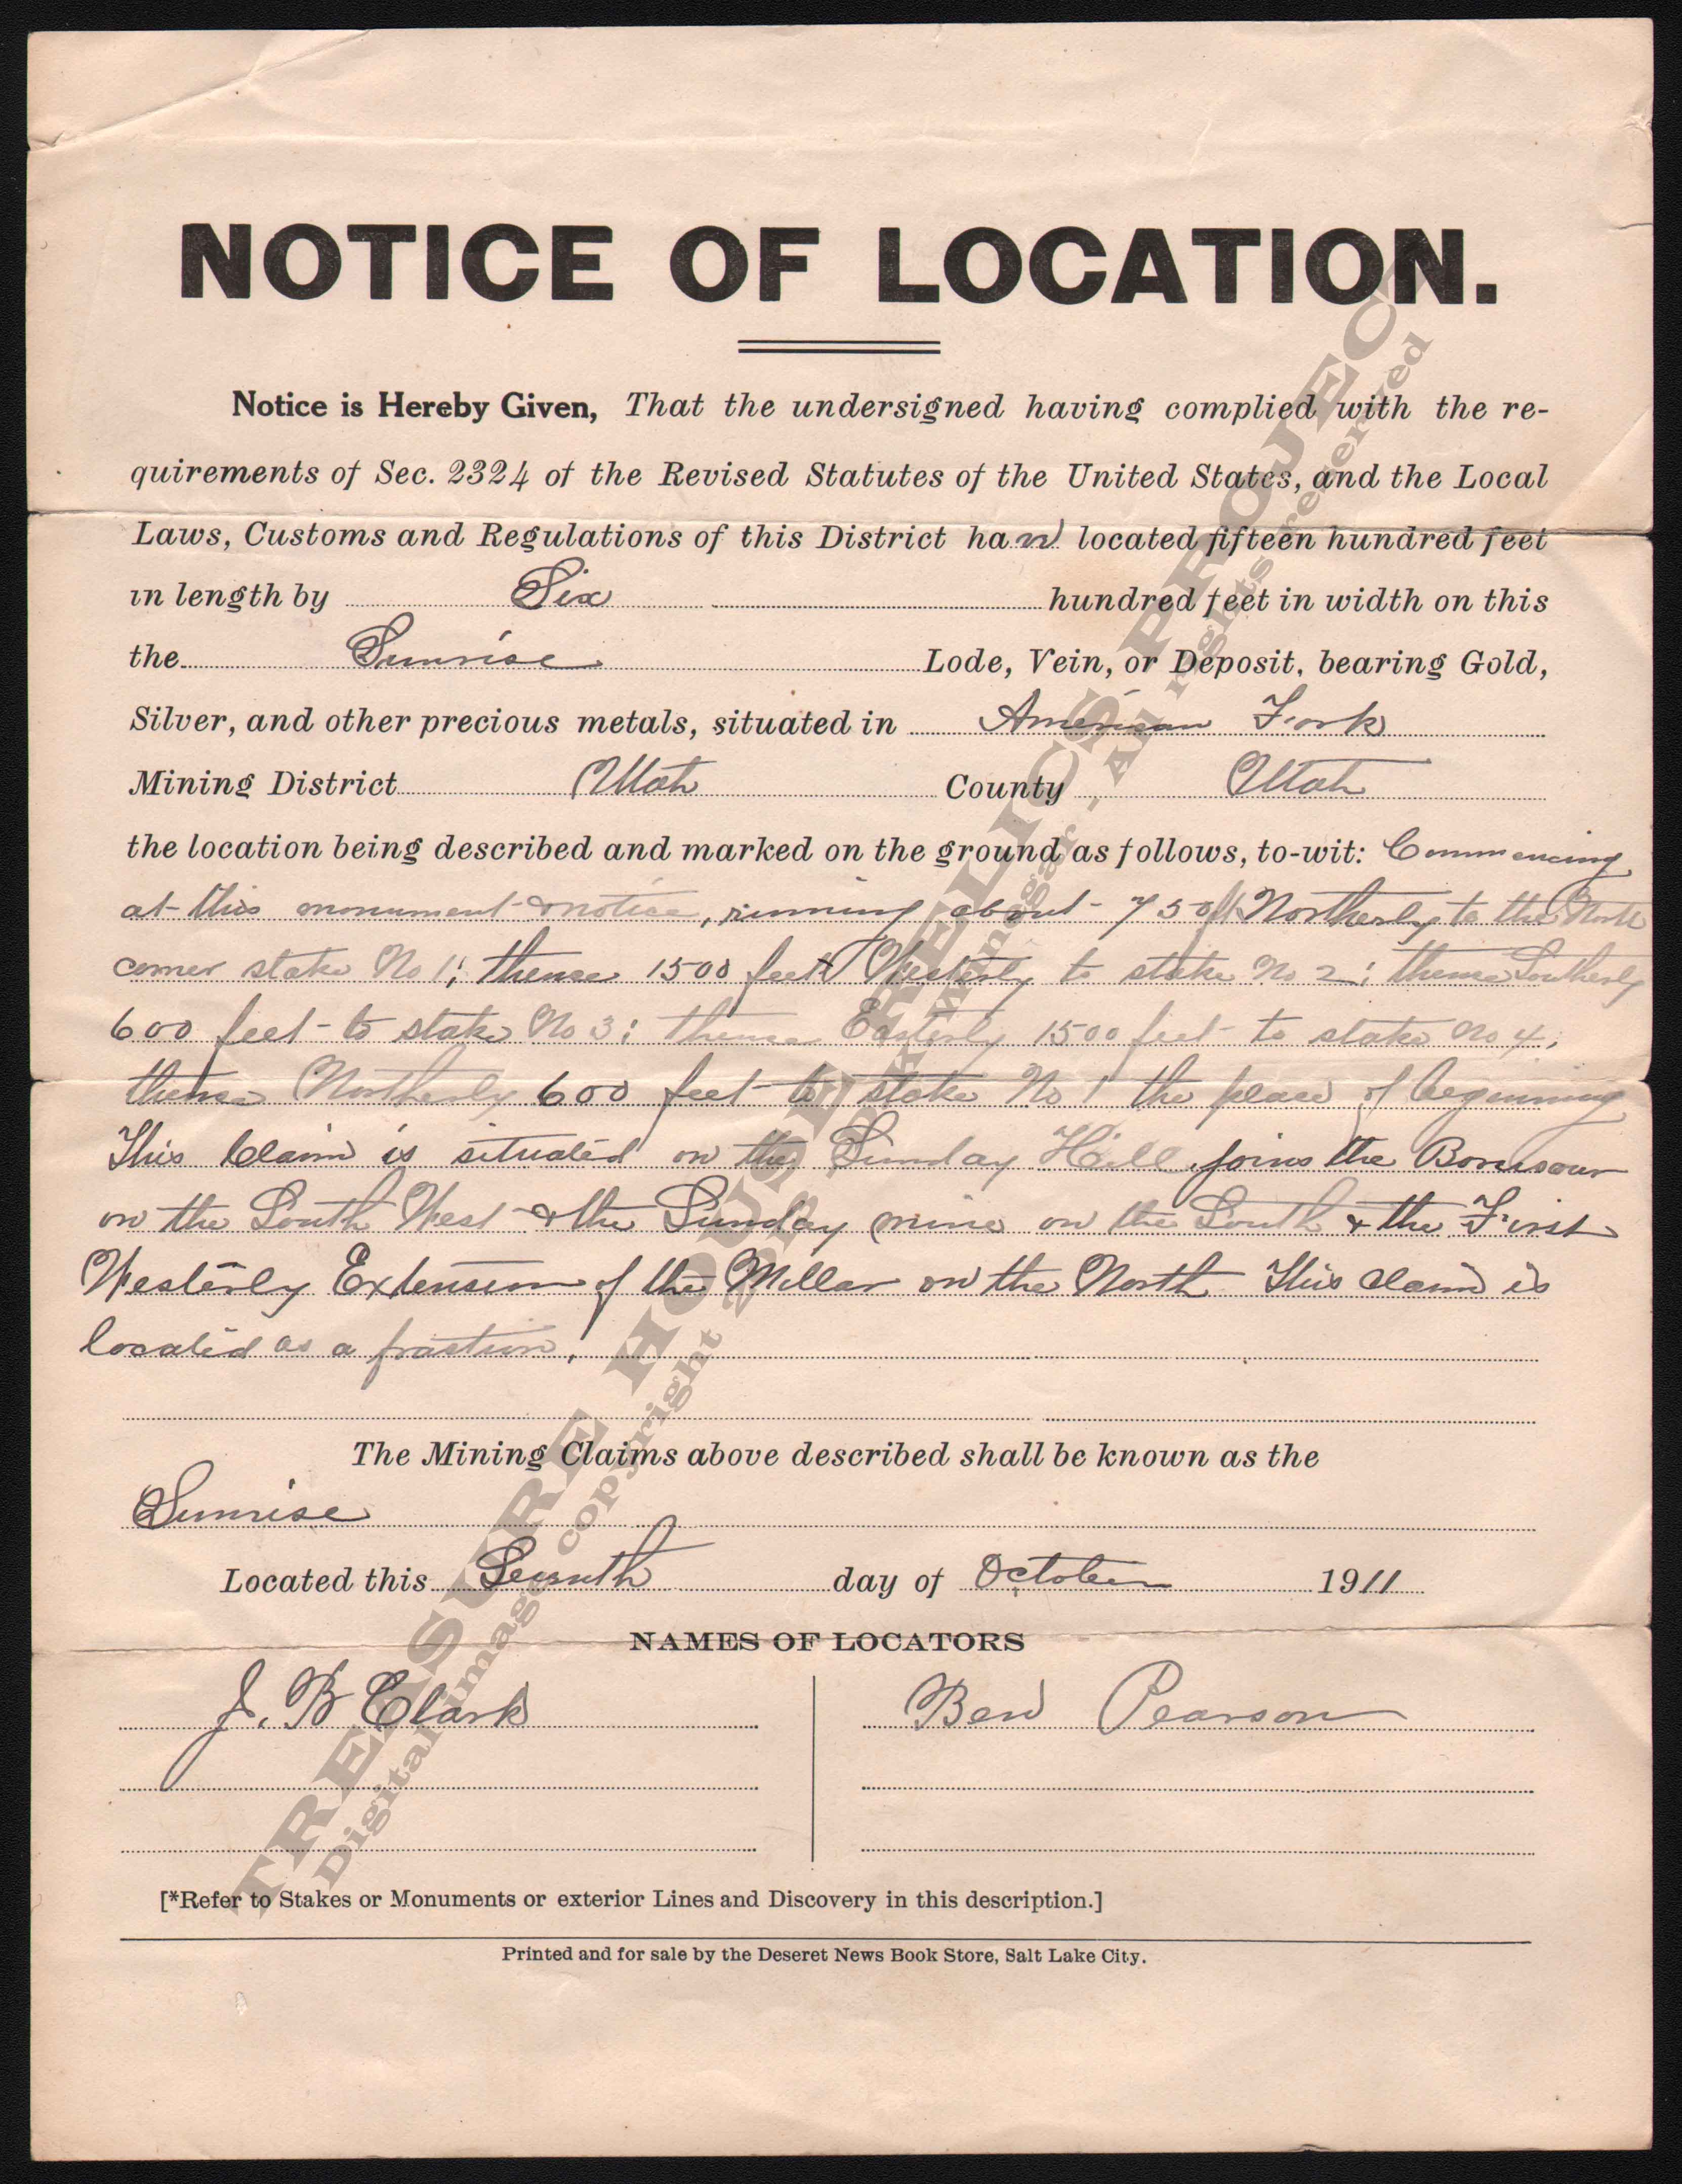 NOTICE OF LOCATION.
Notice is Hereby Given, That the undersigned having complied with the re-
quirements of Sec. 2324 of the Revised Statutes of the United States, and the Local
Laws, Customs and Regulations of this District have located fifteen hundred feet
in length by Six hundred feet in width on this
the Sunrise Lode, Vein, or Deposit, bearing Gold,
Silver, and other precious metals, situated in American Fork
Mining District Utah County Utah
the location being described and marked on the ground as follows, to-wit: Commencing
at this monument & notice, running about 750 ft Northerly to the North
corner stake No 1; thence 1500 feet Westerly to stake No 2; thence Southerly
600 feet to stake No 3; thence Easterly 1500 feet to stake No 4;
thence Northerly 600 feet to stake No 1 the place of begenning
This Claim is situated on the Sunday Hill, joins the
on the South West & the Sunday mine on the South & the First
Westerly Extension of the Millar on the North This claim is
located as a fraction.
The Mining Claims above described shall be known as the
Sunrise
Located this day of October 1911
NAMES OF LOCATORS
J. B Clark Ben Pearson
[*Refer to Stakes or Monuments or exterior Lines and Discovery in this description.]
Printed and for sale by the Deseret News Book Store, Salt Lake City.
TREASURE HOUSE RELICS PROJECT
Digital image copyright - All rights reserved